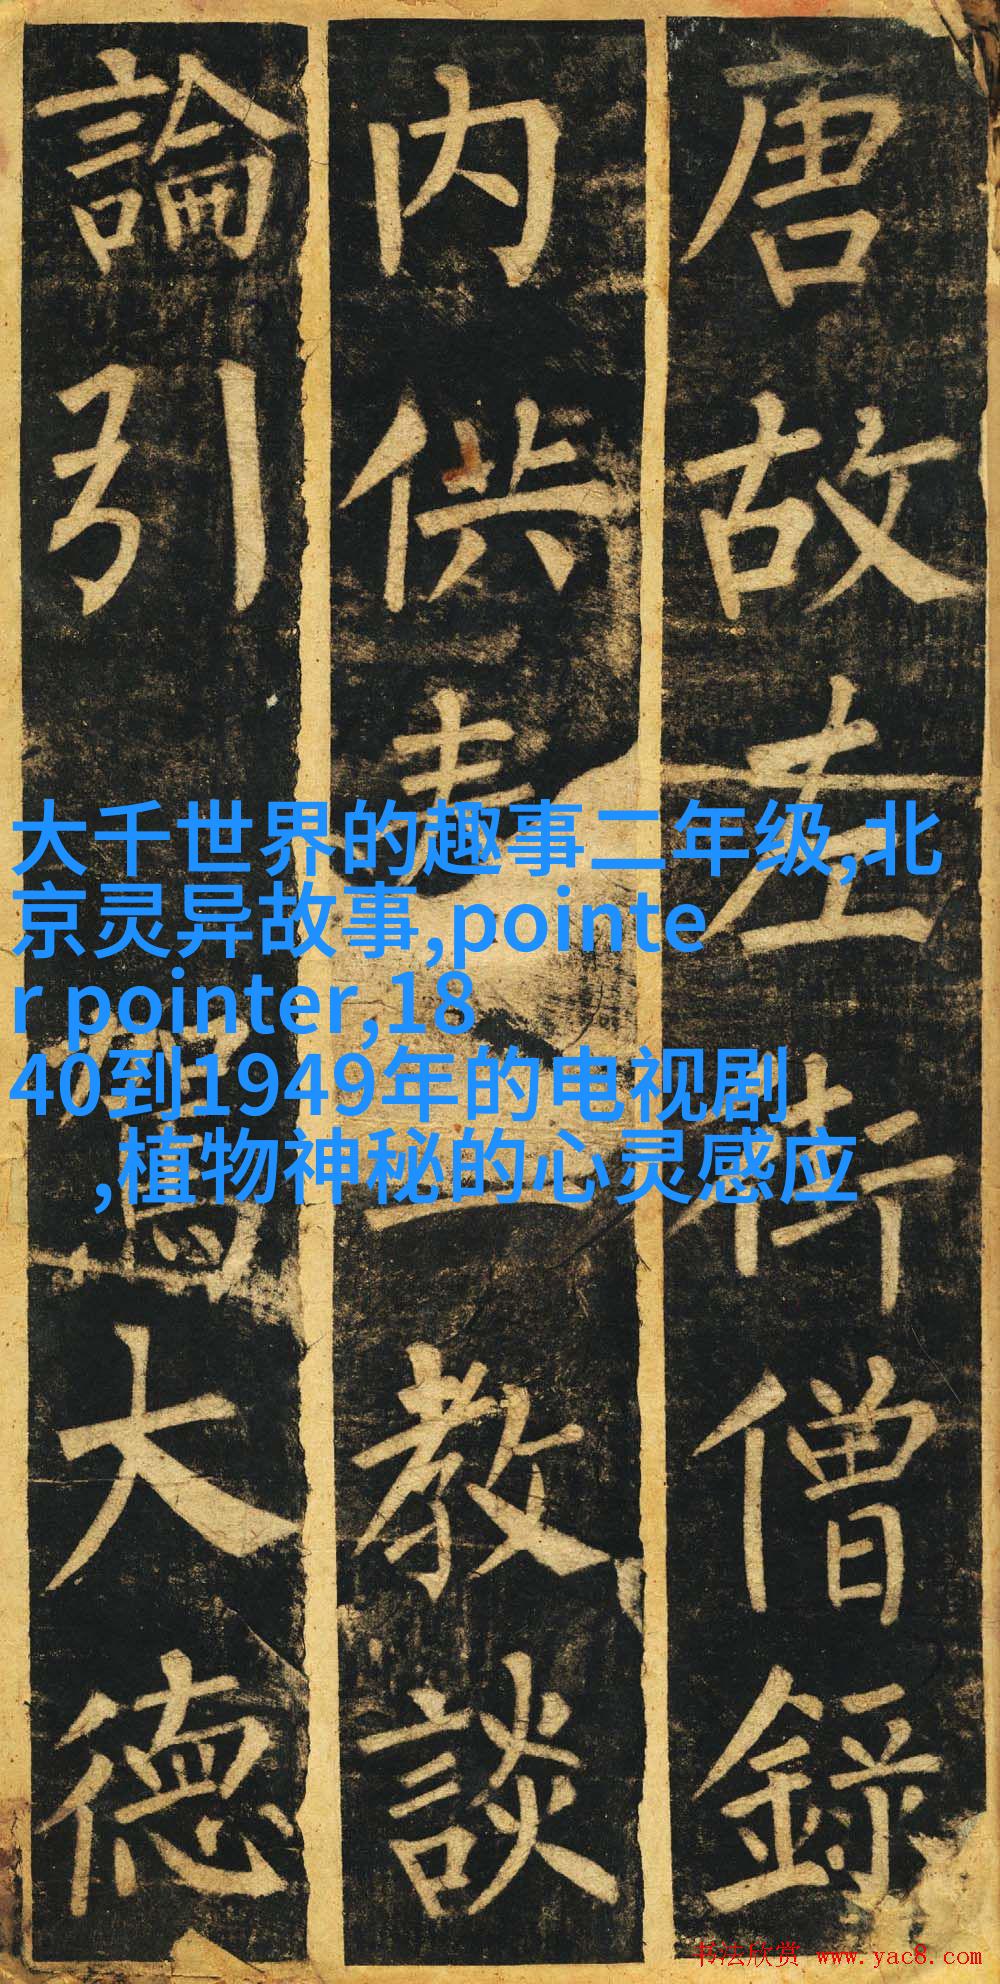 唐故左街僧錄
内供教談
論引大德
大千世界的趣事二年级,北
京灵异故事,pointe
r pointer,18
40到1949年的电视剧
,植物神秘的心灵感应
书法欣赏 www.yac8.com